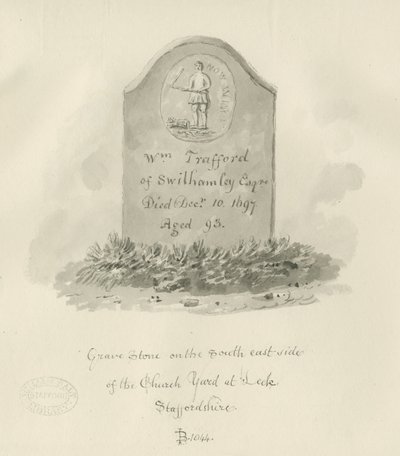 NOW
Wm Trafford
of Swithamley Esqre
Died Decr 10. 1697
Aged 93.
Grave Stone on the South east side
of the Church Yard at Leek
Staffordshire
WILLIAM SALT LIBRARY
STAFFORD
B.1044.